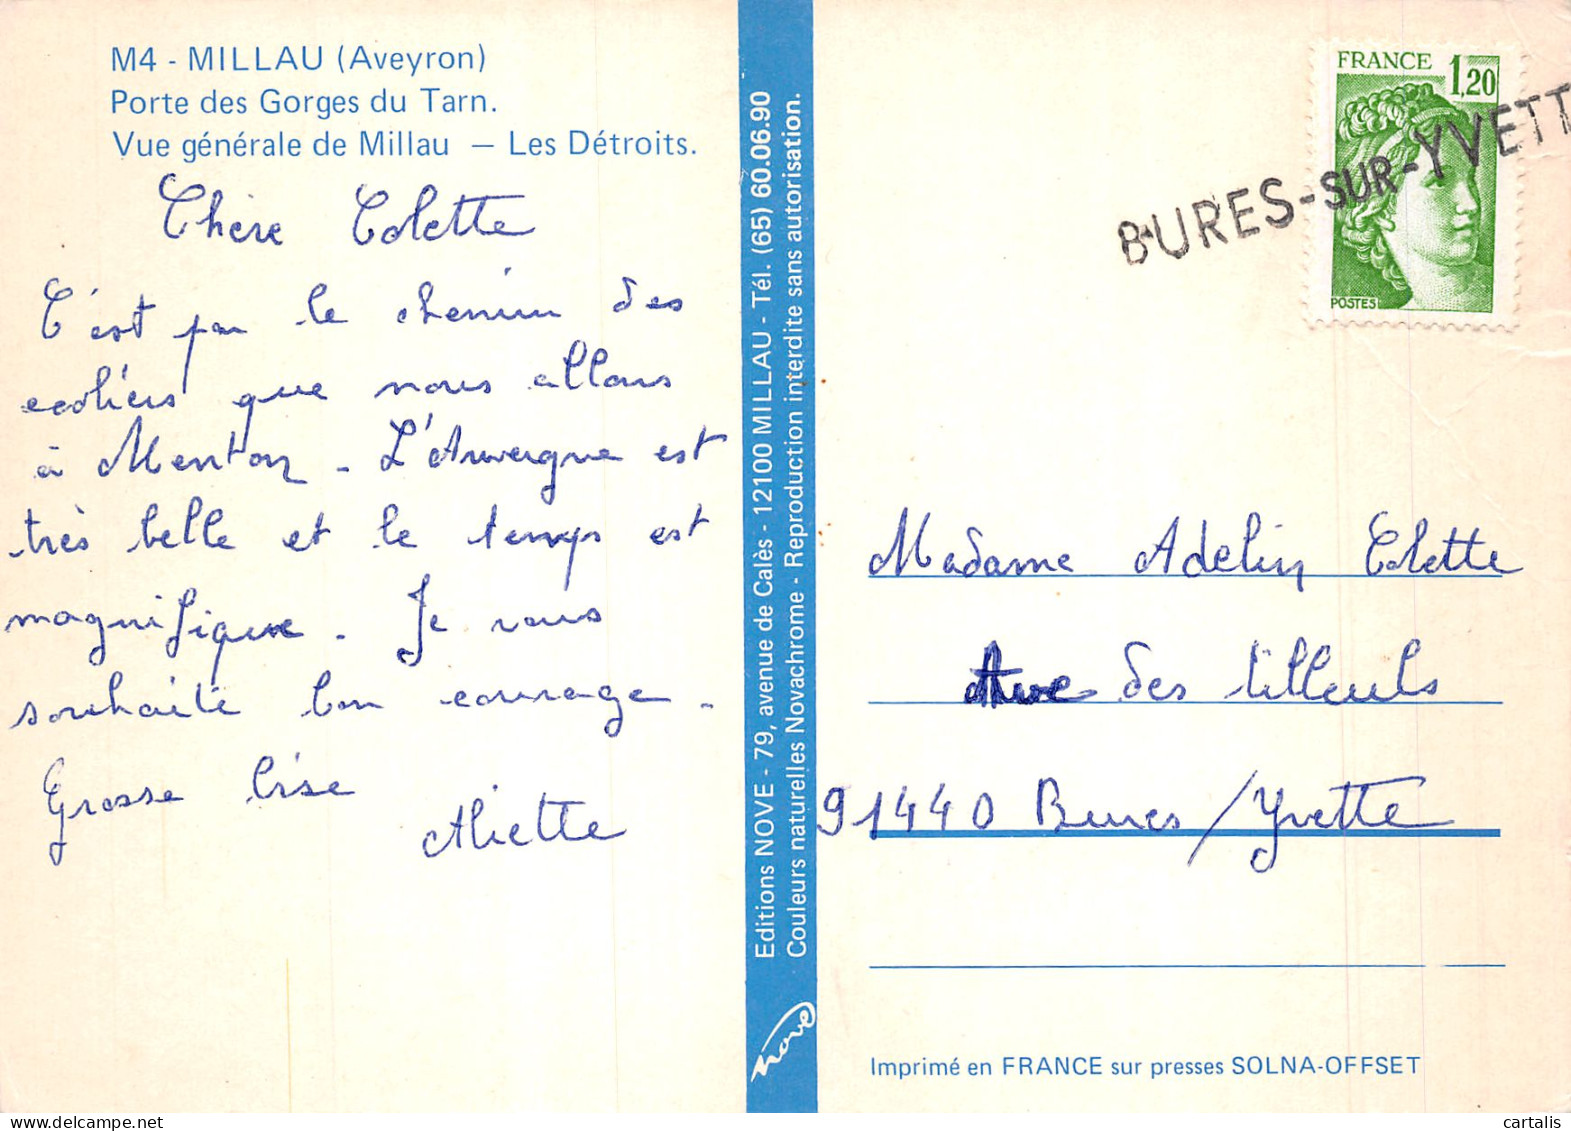 M4 - MILLAU (Aveyron)
Porte des Gorges du Tarn.
Vue générale de Millau — Les Détroits.
Chère Colette
C'est par le chemin des
écoliers que nous allons
à Menton - L'Auvergne est
très belle et le temps est
magnifique. Je vous
souhaite bon courage.
Grosse bise
Aliette
Editions NOVE - 79, avenue de Calès - 12100 MILLAU - Tél. (65) 60.06.90
Couleurs naturelles Novachrome - Reproduction interdite sans autorisation.
nove
FRANCE 1,20
POSTES
BURES-SUR-YVETT
Madame Adelin Colette
Ave des tilleuls
91440 Bures/Yvette
Imprimé en FRANCE sur presses SOLNA-OFFSET
cartalis